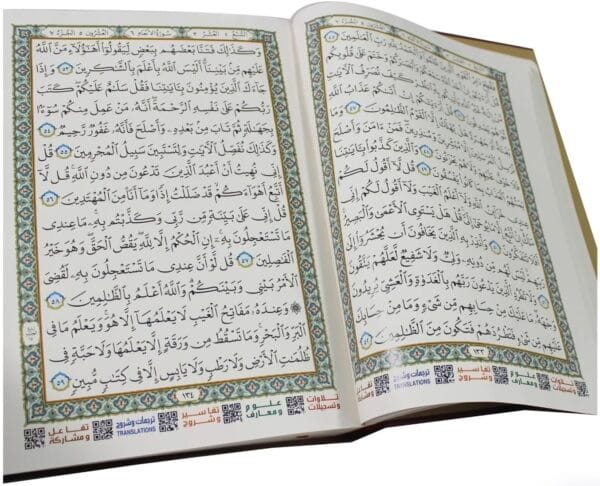 وَٱلْحَمْدُ لِلَّهِ رَبِّ ٱلْعَٰلَمِينَ ٤٥
وَأَبْصَٰرَكُمْ وَخَتَمَ عَلَىٰ قُلُوبِكُم
كَيْفَ نُصَرِّفُ ٱلْأٓيَٰتِ
إِنْ أَتَىٰكُمْ عَذَابُ ٱللَّهِ
هَلْ يُهْلَكُ إِلَّا ٱلْقَوْمُ ٱلظَّٰلِمُونَ ٤٧
وَمُنذِرِينَ فَمَنْ ءَامَنَ وَأَصْلَحَ
وَلَا هُمْ يَحْزَنُونَ ٤٨ وَٱلَّذِينَ كَذَّبُوا۟ بِـَٔايَٰتِنَا
٤٩ قُل لَّآ أَقُولُ
لَكُمْ عِندِى خَزَآئِنُ ٱللَّهِ وَلَآ أَعْلَمُ ٱلْغَيْبَ وَلَآ أَقُولُ لَكُمْ إِنِّى
قُلْ هَلْ يَسْتَوِى ٱلْأَعْمَىٰ وَٱلْبَصِيرُ
وَأَنذِرْ بِهِ ٱلَّذِينَ يَخَافُونَ أَن يُحْشَرُوٓا۟
إِلَىٰ رَبِّهِمْ لَيْسَ لَهُم مِّن دُونِهِۦ وَلِىٌّ وَلَا شَفِيعٌ لَّعَلَّهُمْ يَتَّقُونَ
٥١ وَلَا تَطْرُدِ ٱلَّذِينَ يَدْعُونَ رَبَّهُم بِٱلْغَدَوٰةِ وَٱلْعَشِىِّ يُرِيدُونَ
وَجْهَهُۥ مَا عَلَيْكَ مِنْ حِسَابِهِم مِّن شَىْءٍ وَمَا مِنْ حِسَابِكَ
عَلَيْهِم مِّن شَىْءٍ فَتَطْرُدَهُمْ فَتَكُونَ مِنَ ٱلظَّٰلِمِينَ ٥٢
١٣٣
تلاوات وتسجيلات
علوم ومعارف
تفاسير وشروح
ترجمات وشروح TRANSLATIONS
تفاعل ومشاركة
سُورَةُ الأَنْعَام ٦
وَكَذَٰلِكَ فَتَنَّا بَعْضَهُم بِبَعْضٍ لِّيَقُولُوٓا۟ أَهَٰٓؤُلَآءِ مَنَّ ٱللَّهُ
عَلَيْهِم مِّنۢ بَيْنِنَآ أَلَيْسَ ٱللَّهُ بِأَعْلَمَ بِٱلشَّٰكِرِينَ ٥٣ وَإِذَا
جَآءَكَ ٱلَّذِينَ يُؤْمِنُونَ بِـَٔايَٰتِنَا فَقُلْ سَلَٰمٌ عَلَيْكُمْ كَتَبَ
رَبُّكُمْ عَلَىٰ نَفْسِهِ ٱلرَّحْمَةَ أَنَّهُۥ مَنْ عَمِلَ مِنكُمْ سُوٓءًۢا
بِجَهَٰلَةٍ ثُمَّ تَابَ مِنۢ بَعْدِهِۦ وَأَصْلَحَ فَأَنَّهُۥ غَفُورٌ رَّحِيمٌ ٥٤
وَكَذَٰلِكَ نُفَصِّلُ ٱلْأٓيَٰتِ وَلِتَسْتَبِينَ سَبِيلُ ٱلْمُجْرِمِينَ ٥٥ قُلْ
إِنِّى نُهِيتُ أَنْ أَعْبُدَ ٱلَّذِينَ تَدْعُونَ مِن دُونِ ٱللَّهِ قُل لَّآ
أَتَّبِعُ أَهْوَآءَكُمْ قَدْ ضَلَلْتُ إِذًا وَمَآ أَنَا۠ مِنَ ٱلْمُهْتَدِينَ ٥٦
قُلْ إِنِّى عَلَىٰ بَيِّنَةٍ مِّن رَّبِّى وَكَذَّبْتُم بِهِۦ مَا عِندِى
مَا تَسْتَعْجِلُونَ بِهِۦٓ إِنِ ٱلْحُكْمُ إِلَّا لِلَّهِ يَقُصُّ ٱلْحَقَّ وَهُوَ خَيْرُ
ٱلْفَٰصِلِينَ ٥٧ قُل لَّوْ أَنَّ عِندِى مَا تَسْتَعْجِلُونَ بِهِۦ لَقُضِىَ
ٱلْأَمْرُ بَيْنِى وَبَيْنَكُمْ وَٱللَّهُ أَعْلَمُ بِٱلظَّٰلِمِينَ ٥٨
۞ وَعِندَهُۥ مَفَاتِحُ ٱلْغَيْبِ لَا يَعْلَمُهَآ إِلَّا هُوَ وَيَعْلَمُ مَا فِى
ٱلْبَرِّ وَٱلْبَحْرِ وَمَا تَسْقُطُ مِن وَرَقَةٍ إِلَّا يَعْلَمُهَا وَلَا حَبَّةٍ فِى
ظُلُمَٰتِ ٱلْأَرْضِ وَلَا رَطْبٍ وَلَا يَابِسٍ إِلَّا فِى كِتَٰبٍ مُّبِينٍ ٥٩
١٣٤
تلاوات وتسجيلات
علوم ومعارف
تفاسير وشروح
ترجمات وشروح TRANSLATIONS
تفاعل ومشاركة